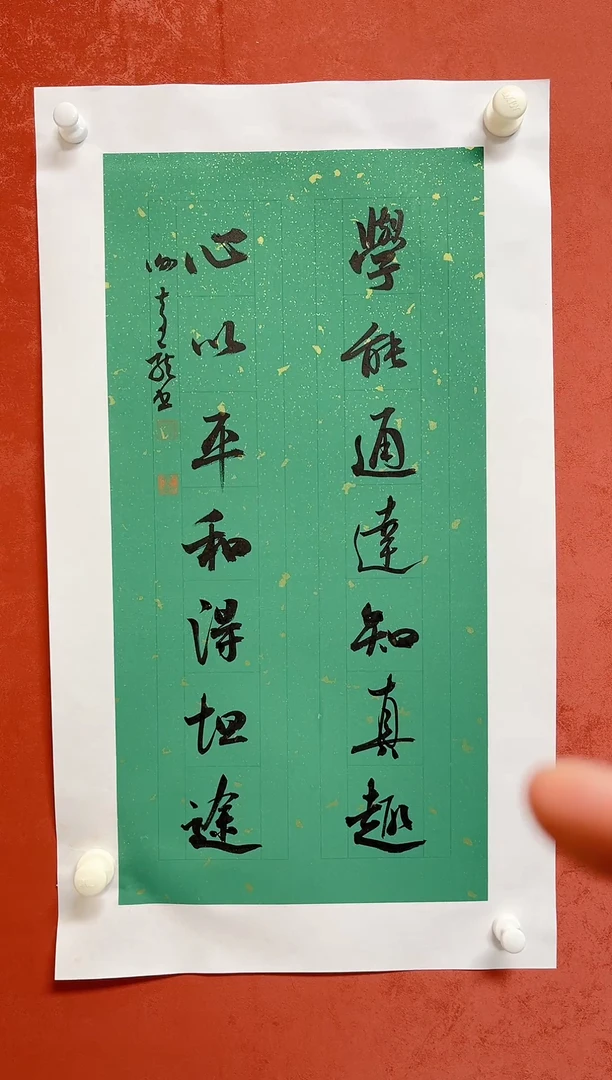 學能通達知真趣
心以平和得坦途